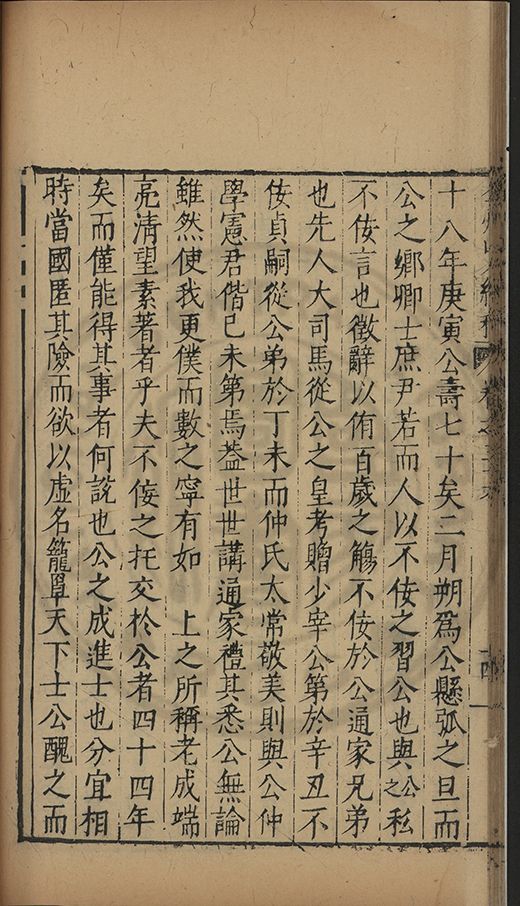 十八年庚寅公壽七十矣二月朔爲公懸弧之旦而
公之鄉卿士庶尹若而人以不佞之習公也與公之私
不佞言也徵辭以侑百歲之觴不佞於公通家兄弟
也先人大司馬從公之皇考贈少宰公第於辛丑不
佞貞嗣從公弟於丁未而仲氏太常敬美則與公仲
學憲君偕已未第焉葢世世講通家禮其悉公無論
雖然使我更僕而數之寧有如 上之所稱老成端
亮清望素著者乎夫不佞之托交於公者四十四年
矣而僅能得其事者何說也公之成進士也分宜相
時當國匿其險而欲以虛名籠罩天下士公醜之而